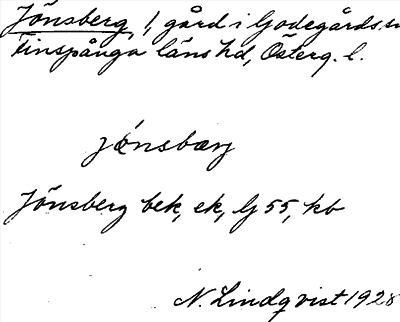 Jönsberg, 1, gård i Godegårds sn
Finspånga läns hd, Österg. l.
Jönsberg bek, ek, lj 55, kb
N. Lindqvist 1928